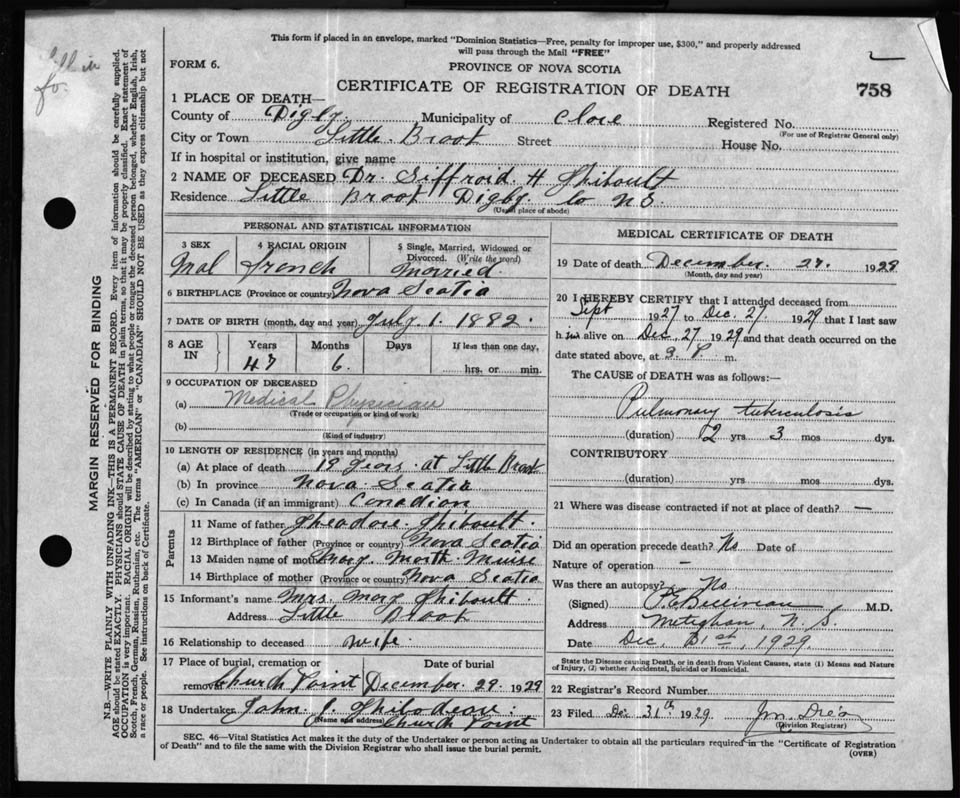 This form if placed in an envelope, marked "Dominion Statistics—Free, penalty for improper use, $300," and properly addressed
will pass through the Mail "FREE"
FORM 6.
PROVINCE OF NOVA SCOTIA
CERTIFICATE OF REGISTRATION OF DEATH
758
1 PLACE OF DEATH—
County of Digby. Municipality of Clare Registered No.
(For use of Registrar General only)
City or Town Little Brook Street House No.
If in hospital or institution, give name
2 NAME OF DECEASED Dr. Siffroid. H Thibault
Residence Little Brook Digby Co N.S.
(Usual place of abode)
PERSONAL AND STATISTICAL INFORMATION
3 SEX 4 RACIAL ORIGIN 5 Single, Married, Widowed or
Divorced. (Write the word)
Mal French Married.
6 BIRTHPLACE (Province or country) Nova Scotia
7 DATE OF BIRTH (month, day and year) July 1. 1882.
8 AGE IN Years Months Days If less than one day,
47 6. hrs. or min.
9 OCCUPATION OF DECEASED
(a) Medical Physician
(Trade or occupation or kind of work)
(b)
(Kind of industry)
10 LENGTH OF RESIDENCE (in years and months)
(a) At place of death 19 years. at Little Brook
(b) In province Nova Scotia
(c) In Canada (if an immigrant) Canadian
Parents
11 Name of father Theadore. Thibault.
12 Birthplace of father (Province or country) Nova Scotia
13 Maiden name of mother Mary. Marth. Muise
14 Birthplace of mother (Province or country) Nova Scotia
15 Informant's name Mrs. Mary Thibault.
Address Little Brook
16 Relationship to deceased wife.
17 Place of burial, cremation or Date of burial
removal Church Point December. 29. 1929
18 Undertaker John. J. Thibodeau.
(Name and address) Church Point
MEDICAL CERTIFICATE OF DEATH
19 Date of death December. 27. 1929
(Month, day and year)
20 I HEREBY CERTIFY that I attended deceased from
Sept 1927 to Dec. 27. 1929 that I last saw
him alive on Dec 27 1929 and that death occurred on the
date stated above, at 3. P. m.
The CAUSE of DEATH was as follows:—
Pulmonary tuberculosis
(duration) 2 yrs 3 mos dys.
CONTRIBUTORY
(duration) yrs. mos. dys.
21 Where was disease contracted if not at place of death? —
Did an operation precede death? No Date of
Nature of operation —
Was there an autopsy? No
(Signed) M.D.
Address Meteghan, N.S.
Date Dec. 31st, 1929.
State the Disease causing Death, or in death from Violent Causes, state (1) Means and Nature
of Injury, (2) whether Accidental, Suicidal or Homicidal.
22 Registrar's Record Number
23 Filed Dec 31th 1929
(Division Registrar)
SEC. 46—Vital Statistics Act makes it the duty of the Undertaker or person acting as Undertaker to obtain all the particulars required in the "Certificate of Registration
of Death" and to file the same with the Division Registrar who shall issue the burial permit.
(OVER)
MARGIN RESERVED FOR BINDING
N.B.—WRITE PLAINLY WITH UNFADING INK—THIS IS A PERMANENT RECORD. Every item of information should be carefully supplied.
AGE should be stated EXACTLY. PHYSICIANS should STATE CAUSE OF DEATH in plain terms, so that it may be properly classified. Exact statement of
OCCUPATION is very important. RACIAL ORIGIN will be described by stating to what people or tongue the deceased person belonged, whether English, Irish,
Scotch, French, German, Russian, Ruthenian, etc. The terms "AMERICAN" or "CANADIAN" SHOULD NOT BE USED as they express citizenship but not
a race or people. See instructions on back of Certificate.